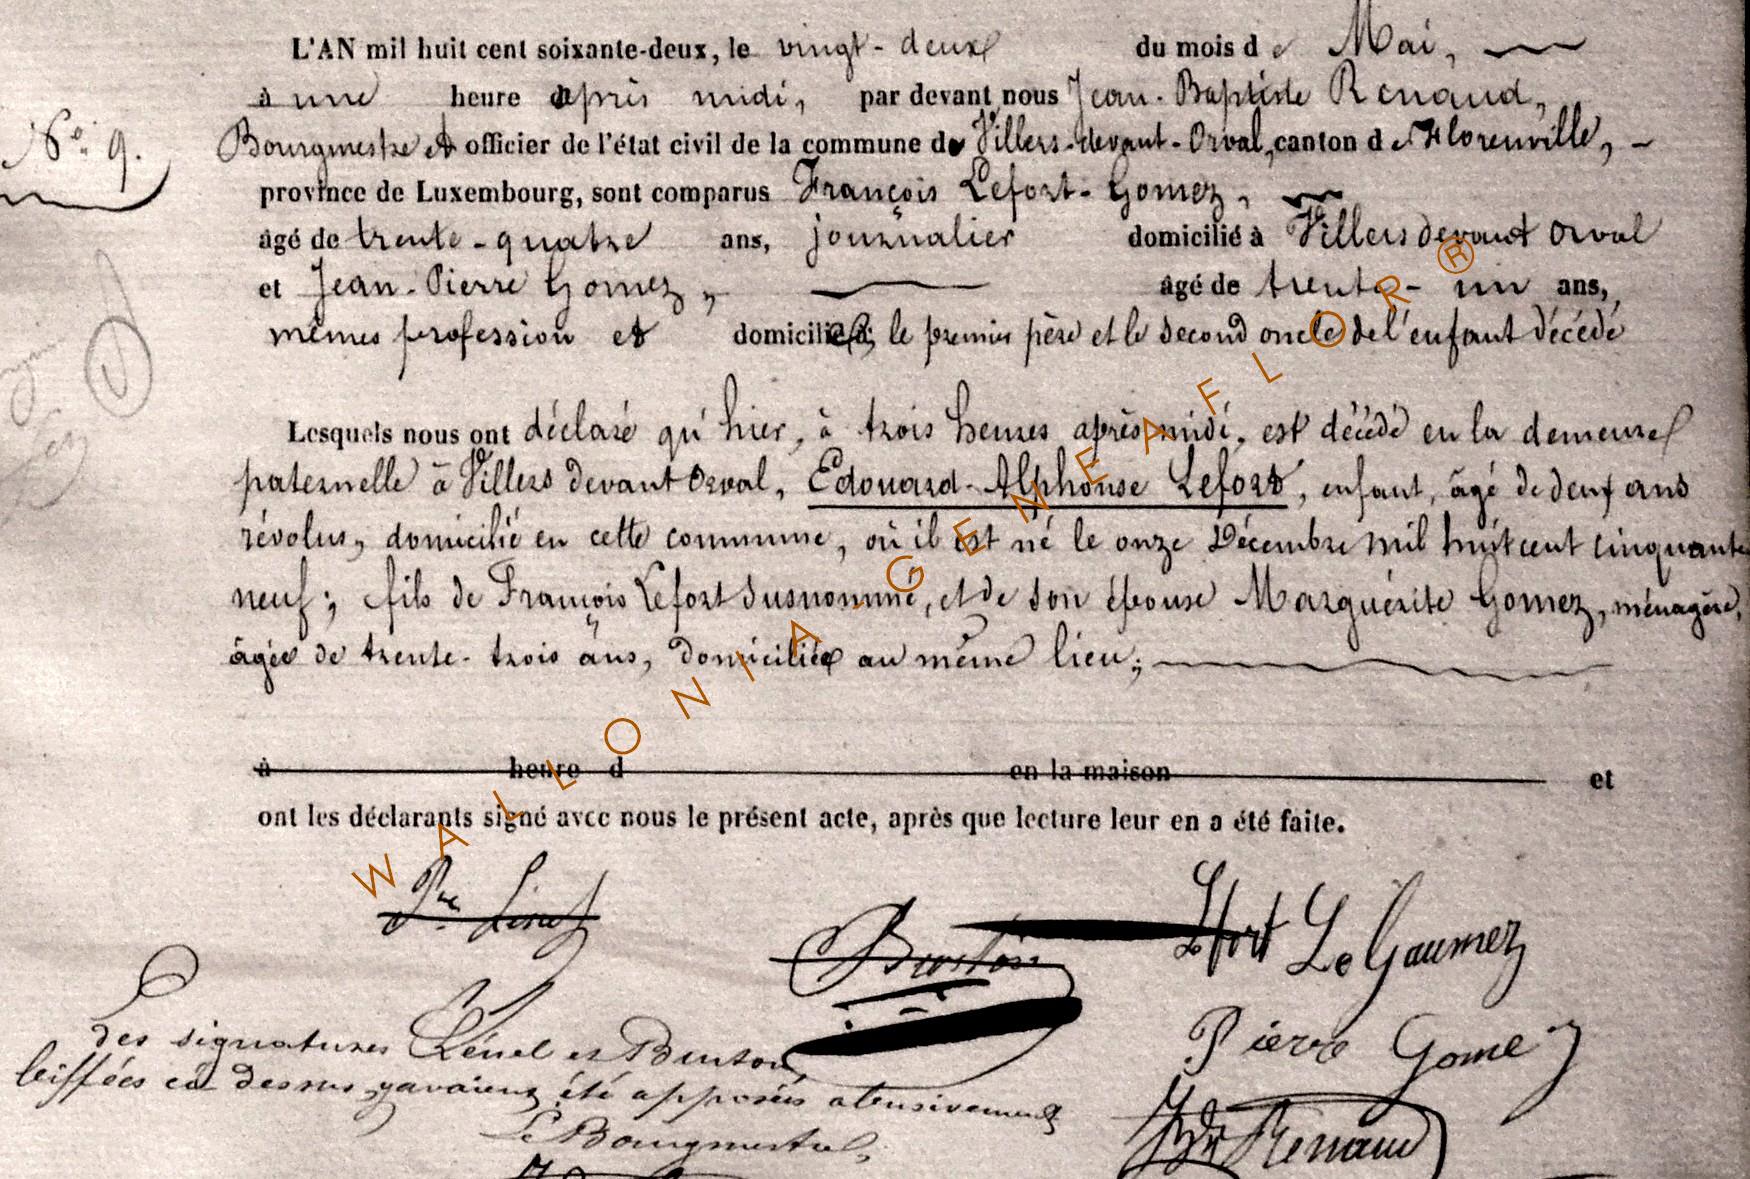 L'AN mil huit cent soixante-deux, le vingt-deux du mois de Mai,
à une heure après midi, par devant nous Jean-Baptiste Renaud,
N° 9.
Bourgmestre et officier de l'état civil de la commune de Villers-devant-Orval, canton de Florenville,
province de Luxembourg, sont comparus François Lefort-Gomez,
âgé de trente-quatre ans, journalier domicilié à Villers devant Orval
et Jean-Pierre Gomez, âgé de trente-un ans,
mêmes profession et domicile; le premier père et le second oncle de l'enfant décédé
Lesquels nous ont déclaré qu'hier, à trois heures après midi, est décédé en la demeure
paternelle à Villers devant Orval, Edouard-Alphonse Lefort, enfant, âgé de deux ans
révolus, domicilié en cette commune, où il est né le onze Décembre mil huit cent cinquante
neuf; fils de François Lefort susnommé, et de son épouse Marguérite Gomez, ménagère,
âgée de trente-trois ans, domiciliée au même lieu;
à heure d en la maison et
ont les déclarants signé avec nous le présent acte, après que lecture leur en a été faite.
Lefort Le Gaumez
Burton
Pierre Gomez
des signatures Lénel et Burton
biffées ci dessus, y avaient été apposées abusivement
Le Bourgmestre,
JBte Renaud
WALLONIA GENEAFLOR ®